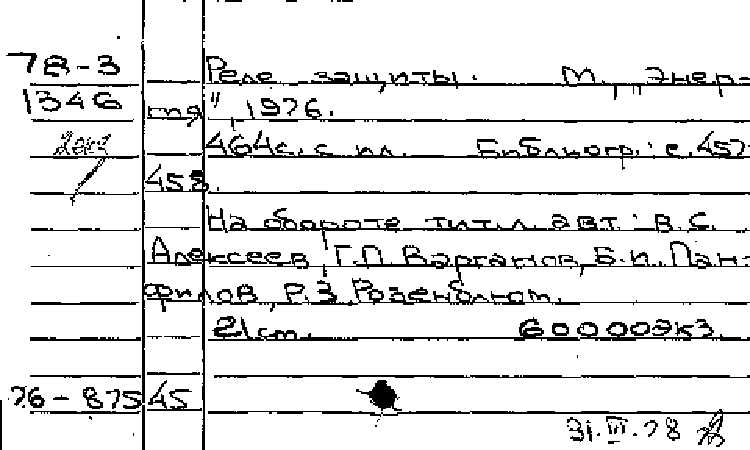 78-3 Реле защиты. М., "Энер-
1346 гия", 1976.
2экз 464с. с ил. Библиогр.: с. 457-
458.
На обороте тит. л. авт.: В.С.
Алексеев, Г.П. Варганов, Б.И. Пан-
филов, Р.З. Розенблюм.
21 см. 60000экз.
76-87545
31.III.78